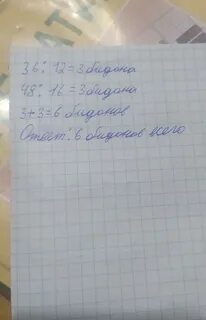 36:12=3 бидона
48:16=3 бидона
3+3=6 бидонов
Ответ: 6 бидонов всего